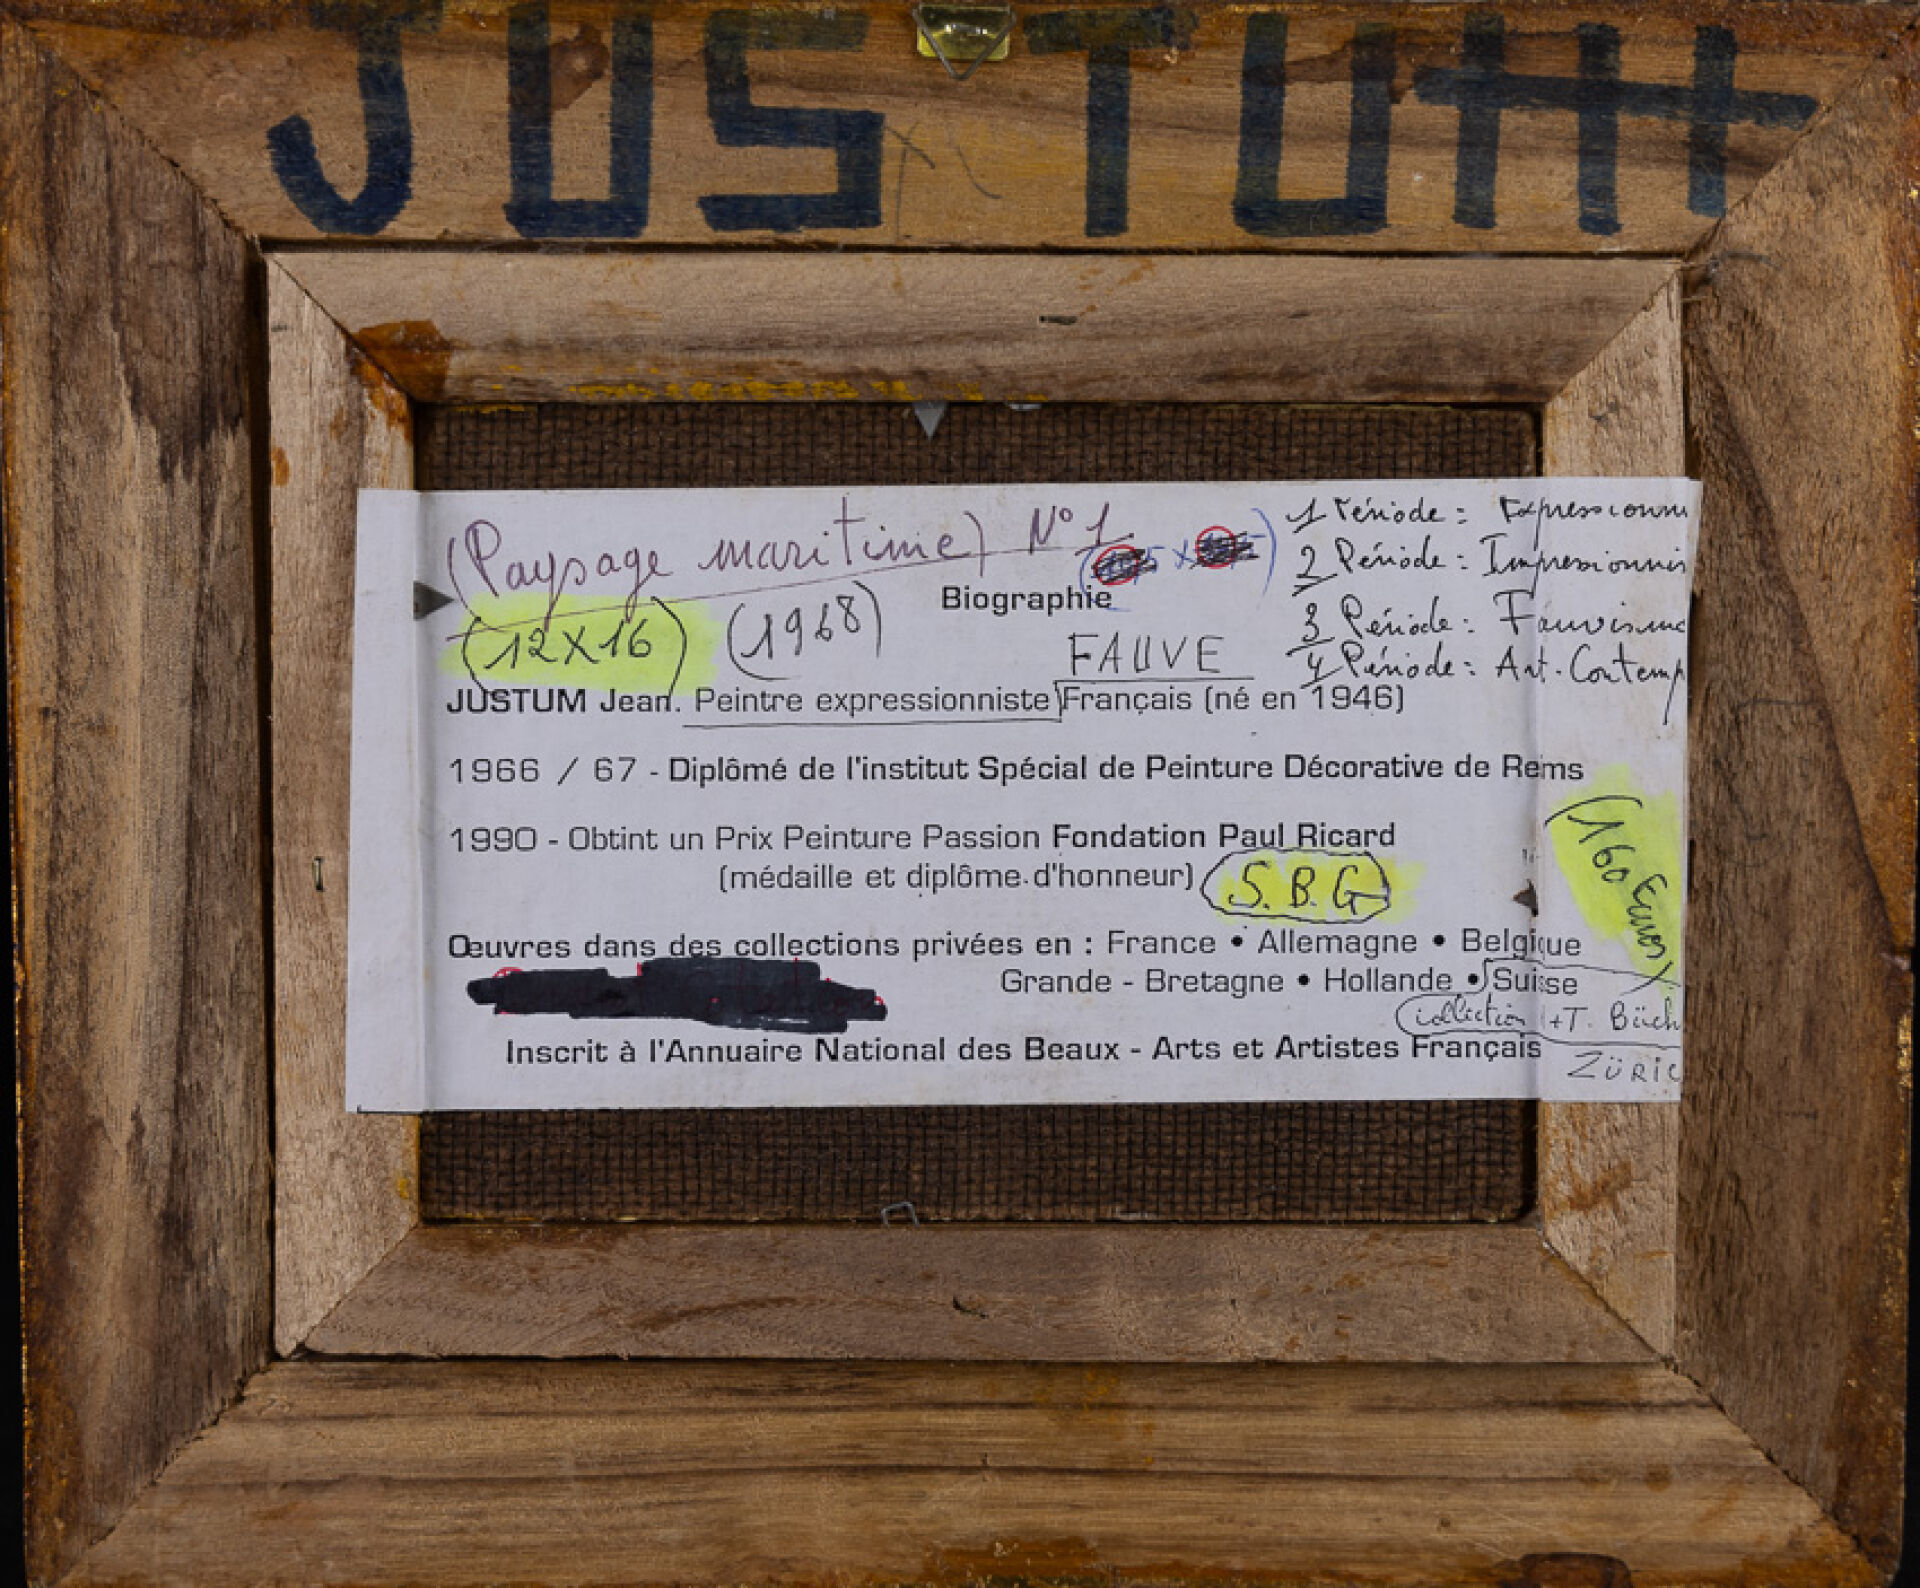 JUSTUM
(Paysage maritime) N° 1
1 Période : Expressionni
2 Période : Impressionnis
Biographie
(12 X 16) (1968)
3 Période : Fauvisme
FAUVE
4 Période : Art. Contemp
JUSTUM Jean. Peintre expressionniste Français (né en 1946)
1966 / 67 - Diplômé de l'institut Spécial de Peinture Décorative de Rems
1990 - Obtint un Prix Peinture Passion Fondation Paul Ricard
(160 Euros)
(médaille et diplôme d'honneur) S.B.G
Œuvres dans des collections privées en : France • Allemagne • Belgique
Grande - Bretagne • Hollande • Suisse
collection +T. Büch
Inscrit à l'Annuaire National des Beaux - Arts et Artistes Français
ZÜRIC